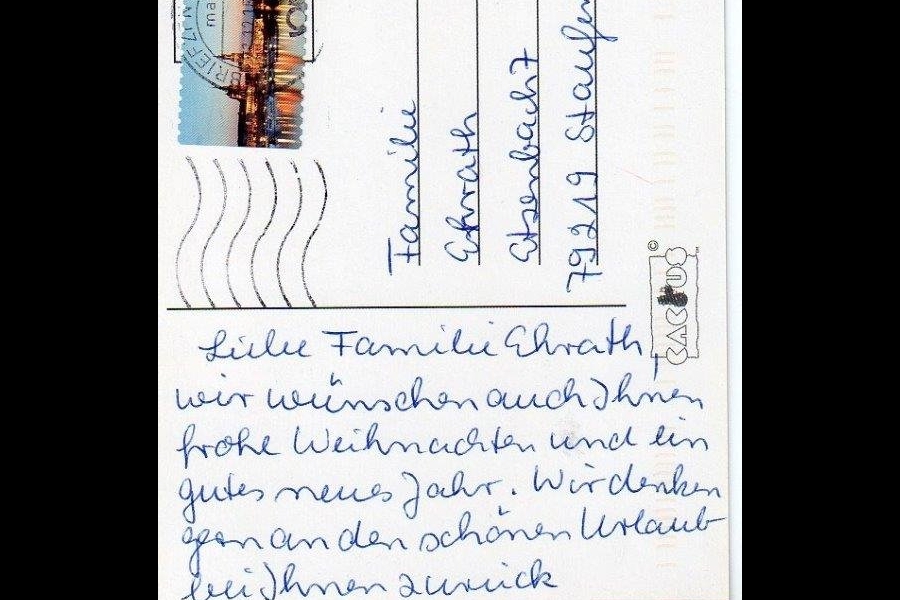 BRIEFZEN
Familie
Ehrath
Etzenbach 7
79219 Staufen
© CACTUS
Liebe Familie Ehrath,
wir wünschen auch Ihnen
frohe Weihnachten und ein
gutes neues Jahr. Wir denken
gern an den schönen Urlaub
bei Ihnen zurück